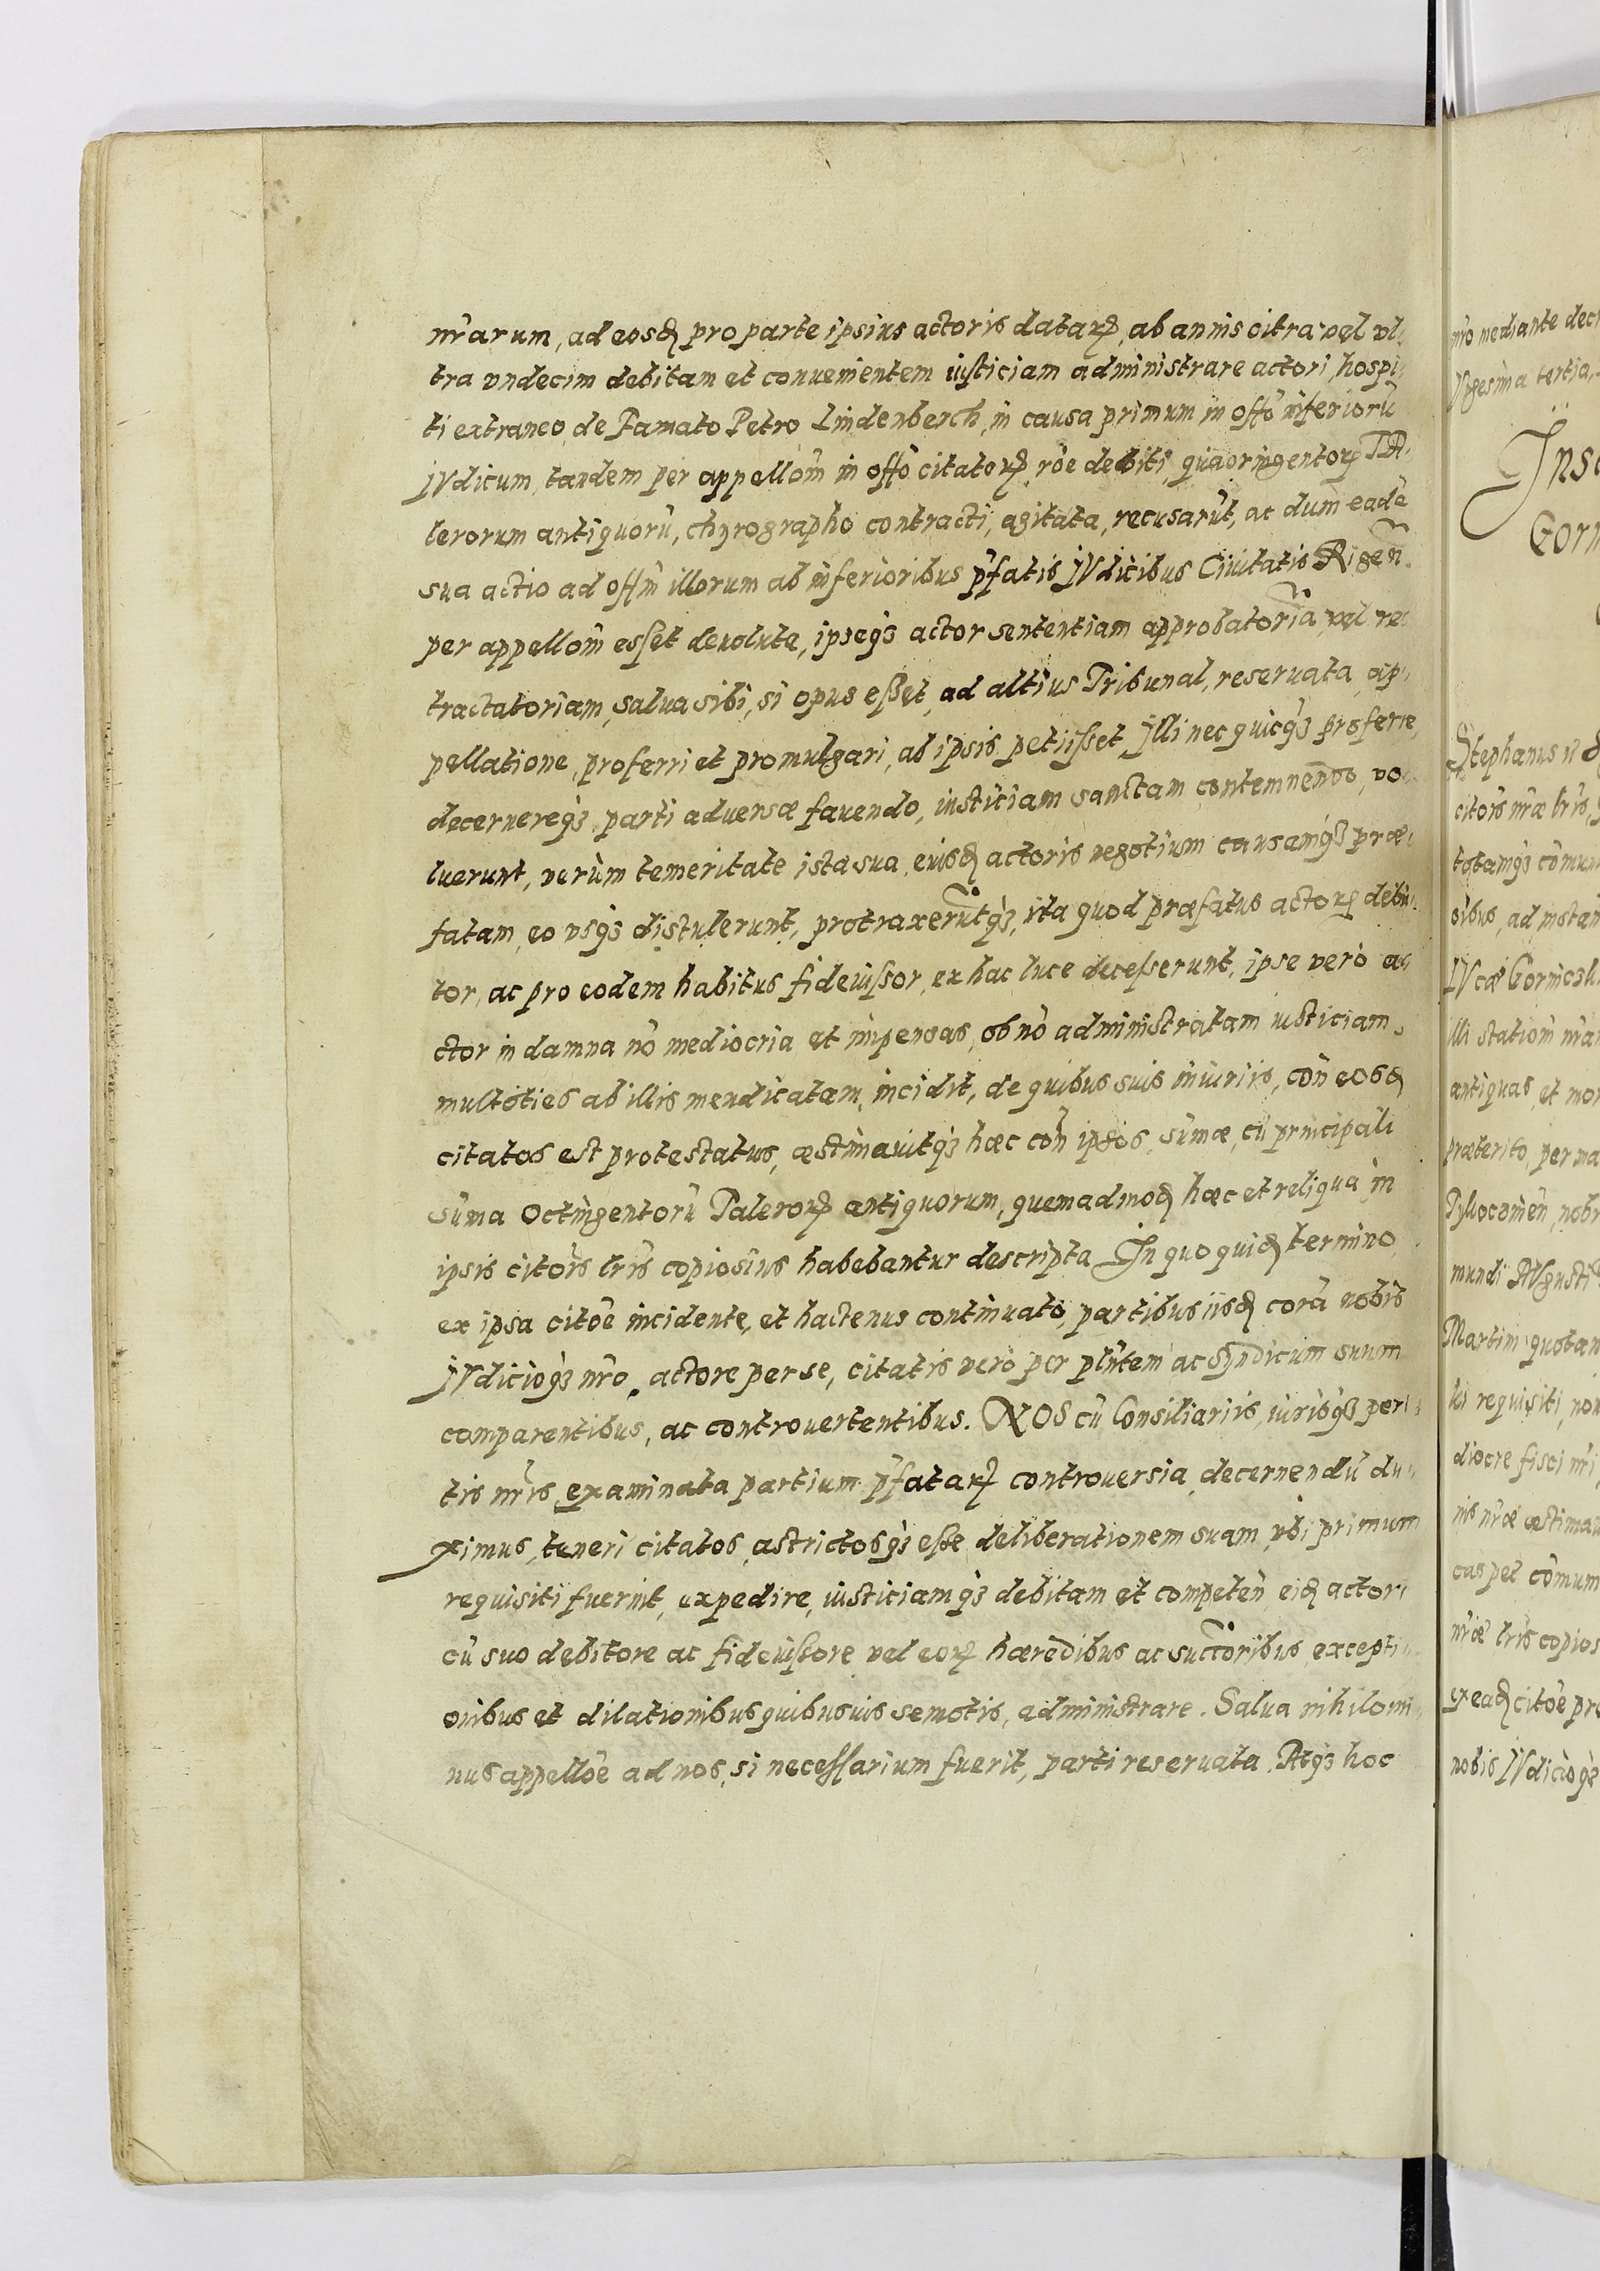 nr̃arum, ad eosꝗ pro parte ipsius actoris dataꝝ, ab annis citra vel vl
tra vndecim debitam et conuenientem iusticiam administrare actori hospi
ti extraneo, de Famato Petro Lindenberch, in causa primum in offõ inferiorũ
IVdicum, tandem per appellõm in offõ citatoꝝ rõe debiti quaoringentoꝝ TA
lerorum antiquorũ, chyrographo contracti, agitata, recusarũt, ac dum eadẽ
sua actio ad offm̃ illorum ab inferioribus pfatis IVdicibus Ciuitatis Rigeñ.
per appellõm esset deuoluta, ipseqȝ actor sententiam approbatoriã, vel re
tractatoriam, salua sibi, si opus esset, ad altius Tribunal, reseruata ap
pellatione, proferri et promulgari, ab ipsis petiisset Illi nec quicqȝ proferre,
decernereqȝ parti aduersæ fauendo, iusticiam sanctam contemnendo, vo
luerunt, verùm temeritate ista sua, eiusꝗ actoris negotium causamqȝ præ
fatam, eo vsqȝ distulerunt, protraxerũtqȝ, ita quod præfatus actoꝝ debi
tor, ac pro eodem habitus fideiussor, ex hac luce decesserunt, ipse verò a
ctor in damna nõ mediocria et impensas, ob nõ administratam iusticiam
multoties ab illis mendicatam, incidit, de quibus suis iniuriis, coñ eosꝗ
citatos est protestatus, æstimauitqȝ hæc coñ ipsos, sũmæ, cũ principali
sũma Octingentorũ Taleroꝝ antiquorum, quemadmoꝗ hæc et reliqua in
ipsis citõis lr̃is copiosius habebantur descripta In quo quiꝗ termino
ex ipsa citõe incidente, et hactenus continuato, partibus iisꝗ corã nobis
IVdicioqȝ nr̃o, actore per se, citatis verò per plñtem ac Syndicum suum
comparentibus, ac controuertentibus. NOS cũ Consiliariis, iurisqȝ peri
tis nr̃is, examinata partium pfataꝝ controuersia, decernendũ du
ximus, teneri citatos, astrictosqȝ esse deliberationem suam, vbi primum
requisiti fuerint, expedire, iusticiamqȝ debitam et competeñ eiꝗ actori
cũ suo debitore ac fideiussore vel eoꝝ hæredibus ac succõribus, excepti
onibus et dilationibus quibusuis semotis, administrare. Salua nihilomi
nus appellõe ad nos, si necessarium fuerit, parti reseruata. Atqȝ hoc
nr̃o mediante dec
Vgesima tertia
Ins
Gorn
Stephanus
citõis nr̃æ lr̃is,
totamqȝ cõmun
sibus, ad instan
IVcæ Gornicsk
illi statiom̃ nr̃a
antiquas, et no
præterito, per ma
Tyllocomieñ, nobr
mundi AVgusti
Martini quotan
lei requisiti, non
diocre fisci nr̃i
nis nr̃æ æstima
cas per cõmum
nr̃æ lr̃is copios
ex eaꝗ citõe pr
nobis IVdicioqȝ